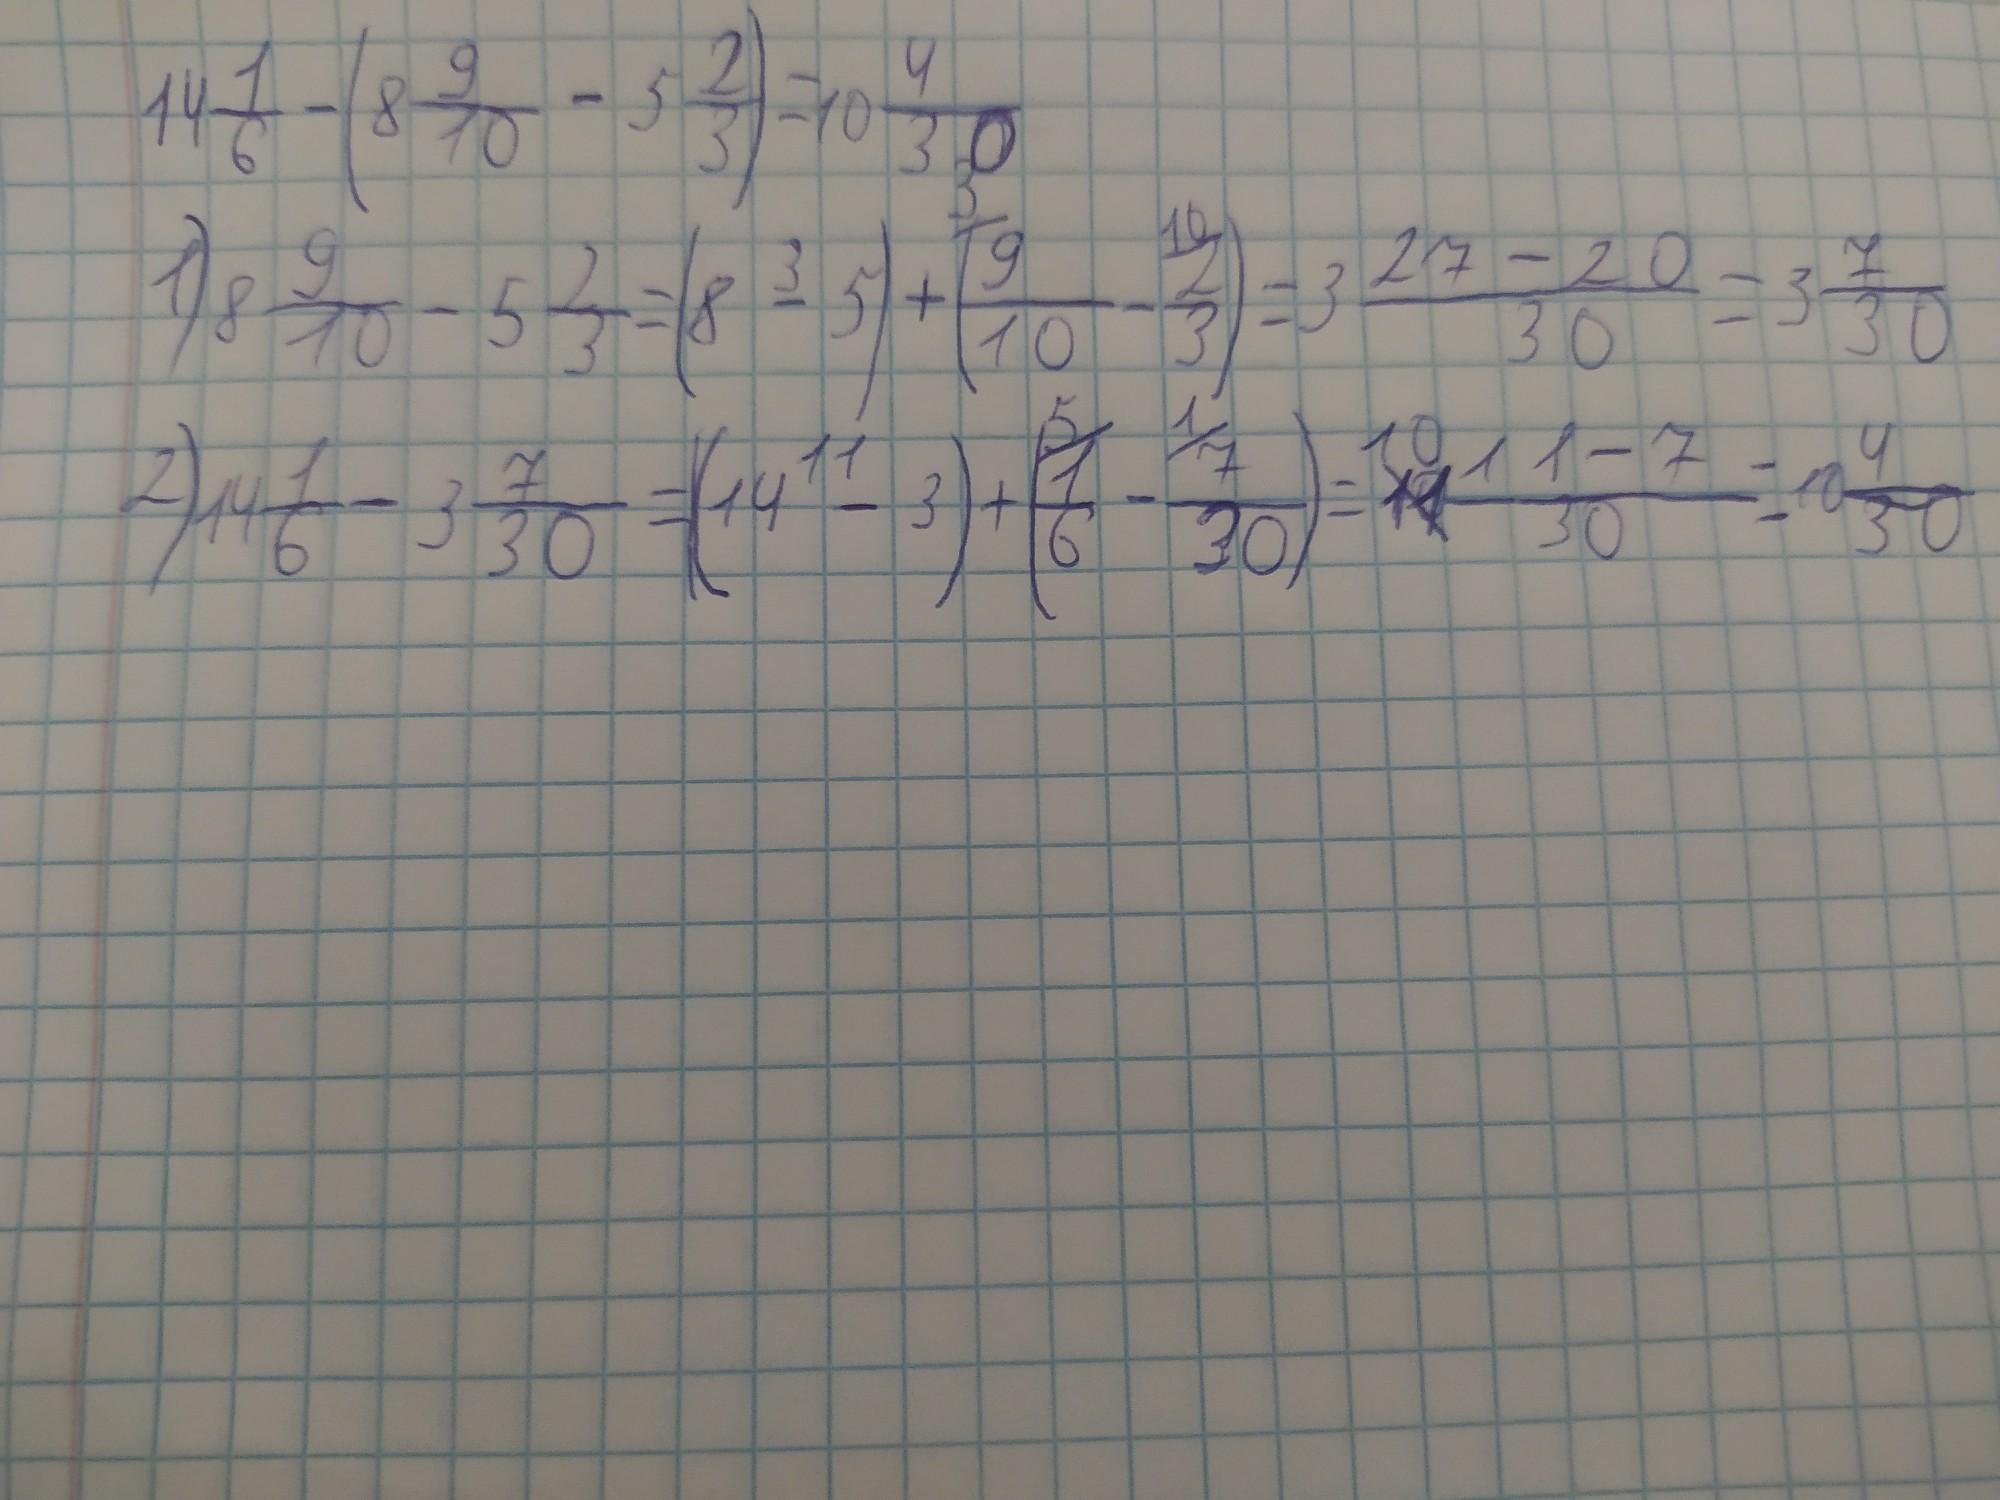 14 1/6 - (8 9/10 - 5 2/3) = 10 4/30
1) 8 9/10 - 5 2/3 = (8 3 - 5) + (3/ 9/10 - 10/ 2/3) = 3 27-20/30 = 3 7/30
2) 14 1/6 - 3 7/30 = (14 11 - 3) + (5/ 1/6 - 1/ 7/30) = 10 11-7/30 = 10 4/30